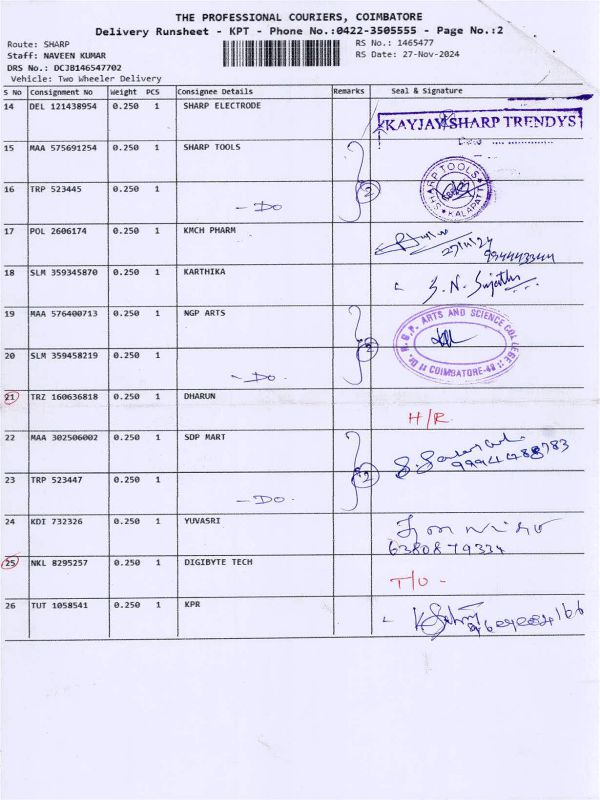 THE PROFESSIONAL COURIERS, COIMBATORE
Delivery Runsheet - KPT - Phone No.:0422-3505555 - Page No.:2
Route: SHARP
RS No.: 1465477
Staff: NAVEEN KUMAR
RS Date: 27-Nov-2024
DRS No.: DCJB146547702
Vehicle: Two Wheeler Delivery
S No Consignment No Weight PCS Consignee Details Remarks Seal & Signature
14 DEL 121438954 0.250 1 SHARP ELECTRODE
KAYJAY SHARP TRENDYS
15 MAA 575691254 0.250 1 SHARP TOOLS
SHARP TOOLS
KALAPATTI
16 TRP 523445 0.250 1 - Do 2
17 POL 2606174 0.250 1 KMCH PHARM
27/11/24
18 SLM 359345870 0.250 1 KARTHIKA
S. N. Sujatha
19 MAA 576400713 0.250 1 NGP ARTS
Dr. N.G.P. ARTS AND SCIENCE COLLEGE
COIMBATORE-48
20 SLM 359458219 0.250 1 - Do. 2
21 TRZ 160636818 0.250 1 DHARUN
H/R
22 MAA 302506002 0.250 1 SDP MART
23 TRP 523447 0.250 1 - Do. 2
24 KDI 732326 0.250 1 YUVASRI
6380879334
25 NKL 8295257 0.250 1 DIGIBYTE TECH
T/O -
26 TUT 1058541 0.250 1 KPR